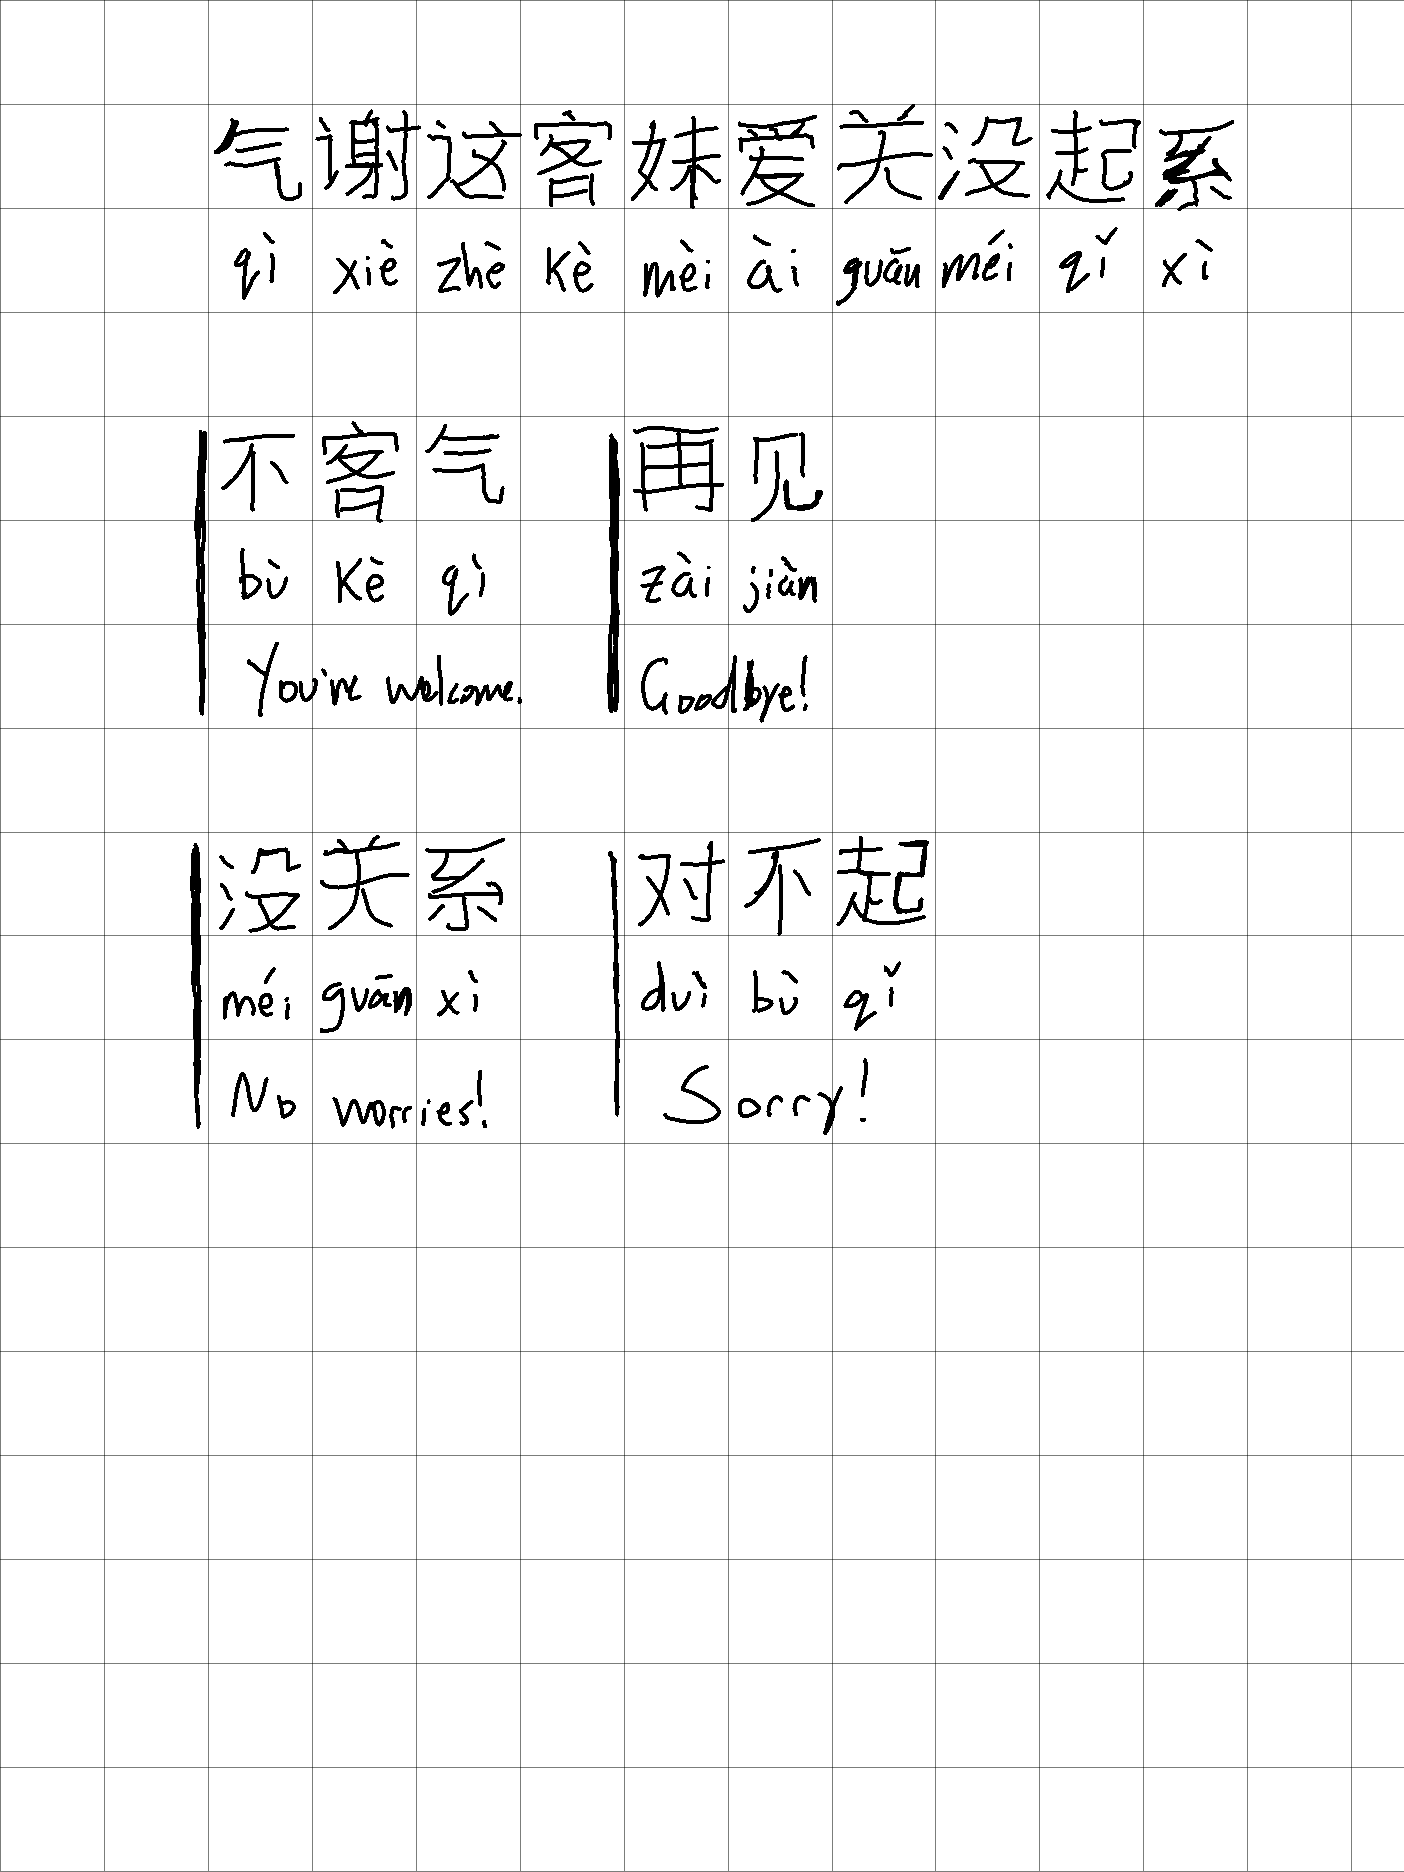 气谢这客妹爱关没起系
qì xiè zhè kè mèi ài guān méi qǐ xì
不客气 再见
bù kè qì zài jiàn
You're welcome. Goodbye!
没关系 对不起
méi guān xì duì bù qǐ
No worries! Sorry!